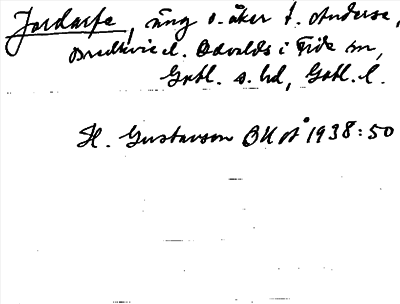 Jordarfe, äng o. åker t. Anderse,
Bredkvie o. Odvalds i Fide sn,
Gotl. s. hd, Gotl. l.
H. Gustavson OUÅ 1938:50